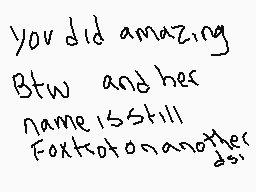 you did amazing
Btw and her
name is still
Foxtrot on another
dsi